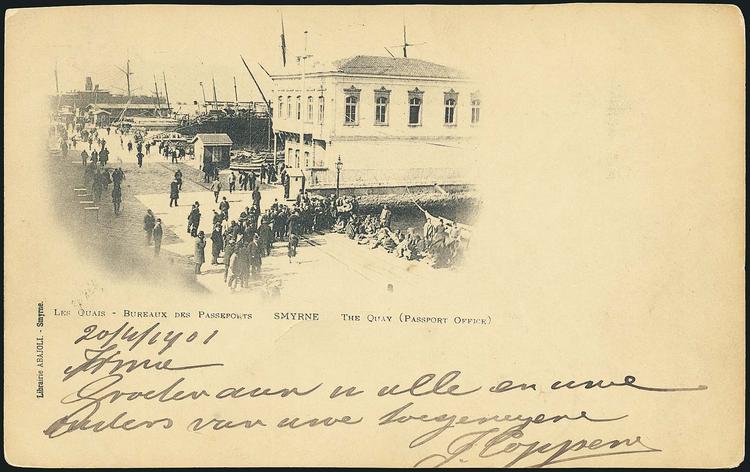 Les Quais - Bureaux des Passeports SMYRNE The Quay (Passport Office)
Librairie ABAJOLI. - Smyrne.
20/4/1901
Groeten aan u alle en uwe
ouders van uwe toegenegene
J. Coppens